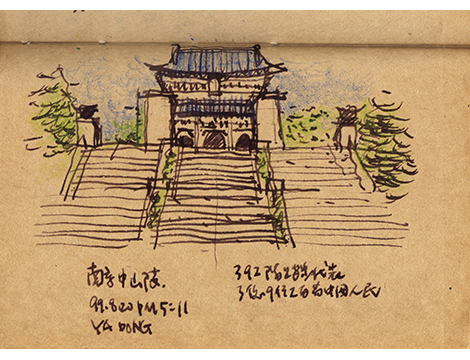 南京中山陵.
99.8.20 PM 5=11
YA DONG
392 代表
3億9仟2百萬中国人民